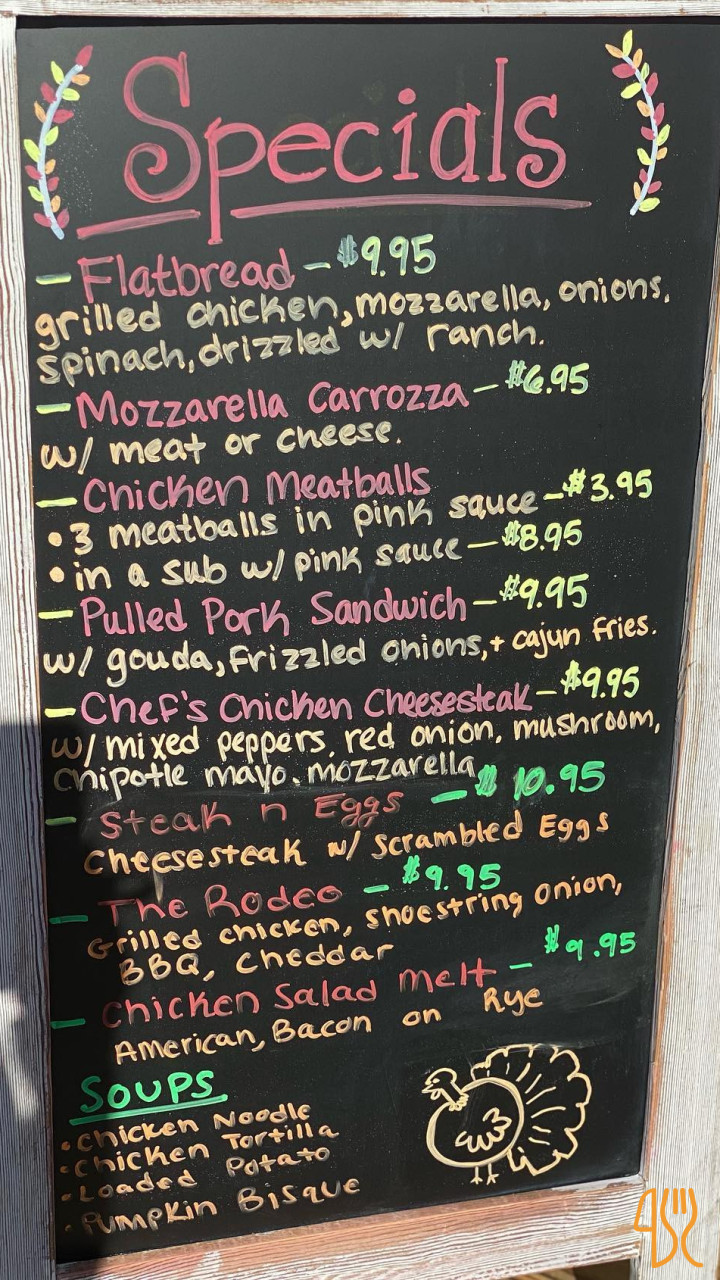 Specials
- Flatbread - $9.95
grilled chicken, mozzarella, onions,
spinach, drizzled w/ ranch.
- Mozzarella Carrozza - $6.95
w/ meat or cheese.
- Chicken Meatballs
• 3 meatballs in pink sauce - $3.95
• in a sub w/ pink sauce - $8.95
- Pulled Pork Sandwich - $9.95
w/ gouda, frizzled onions, + cajun fries.
- Chef's Chicken Cheesesteak - $9.95
w/ mixed peppers, red onion, mushroom,
chipotle mayo, mozzarella
- Steak n Eggs - $10.95
Cheesesteak w/ Scrambled Eggs
- The Rodeo - $9.95
Grilled chicken, shoestring onion,
BBQ, Cheddar
- Chicken Salad melt - $9.95
American, Bacon on Rye
SOUPS
• Chicken Noodle
• Chicken Tortilla
• Loaded Potato
• Pumpkin Bisque